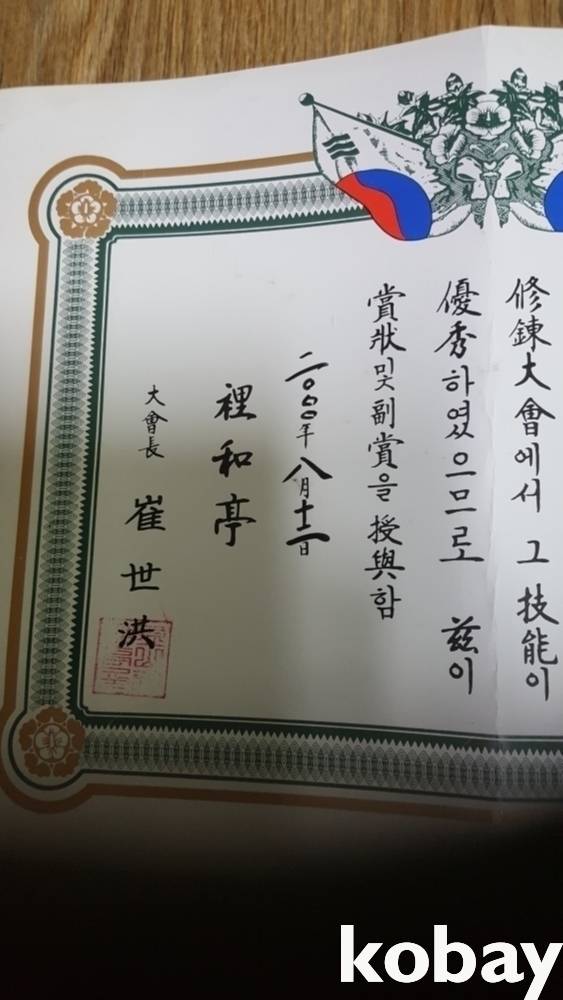 修鍊大會에서 그 技能이
優秀하였으므로 玆이
賞狀및副賞을 授與함
二〇〇〇年 八月十二日
裡和亭
大會長 崔世洪
kobay